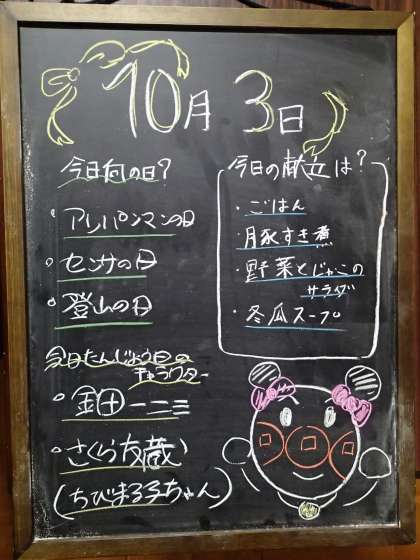 10月3日
今日何の日?
。アンパンマンの日
。センサの日
。登山の日
今日たんじょう日の
キャラクター
。金田一二三
。さくら友蔵
(ちびまる子ちゃん)
今日の献立は?
・ごはん
・豚すき煮
・野菜とじゃこの
サラダ
・冬瓜スープ